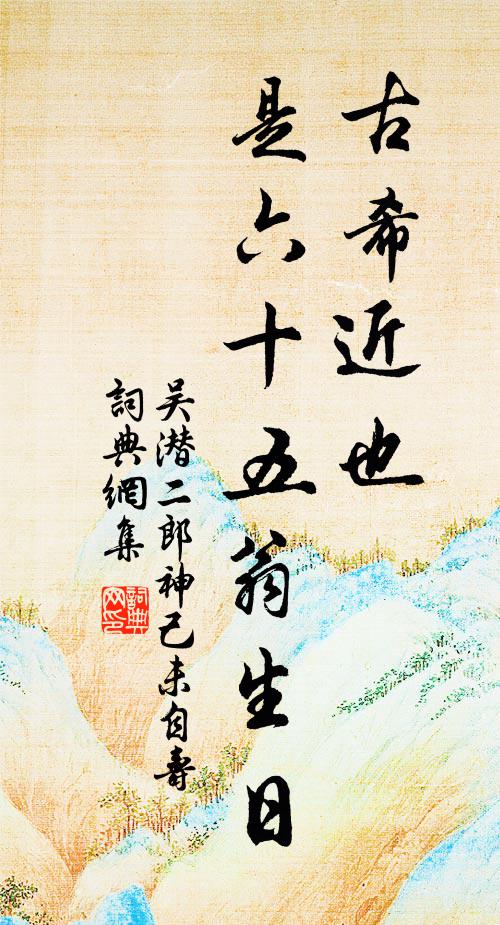 古希近也
是六十五翁生日
吴潜二郎神己未自壽
詞典網集
詞典
网印